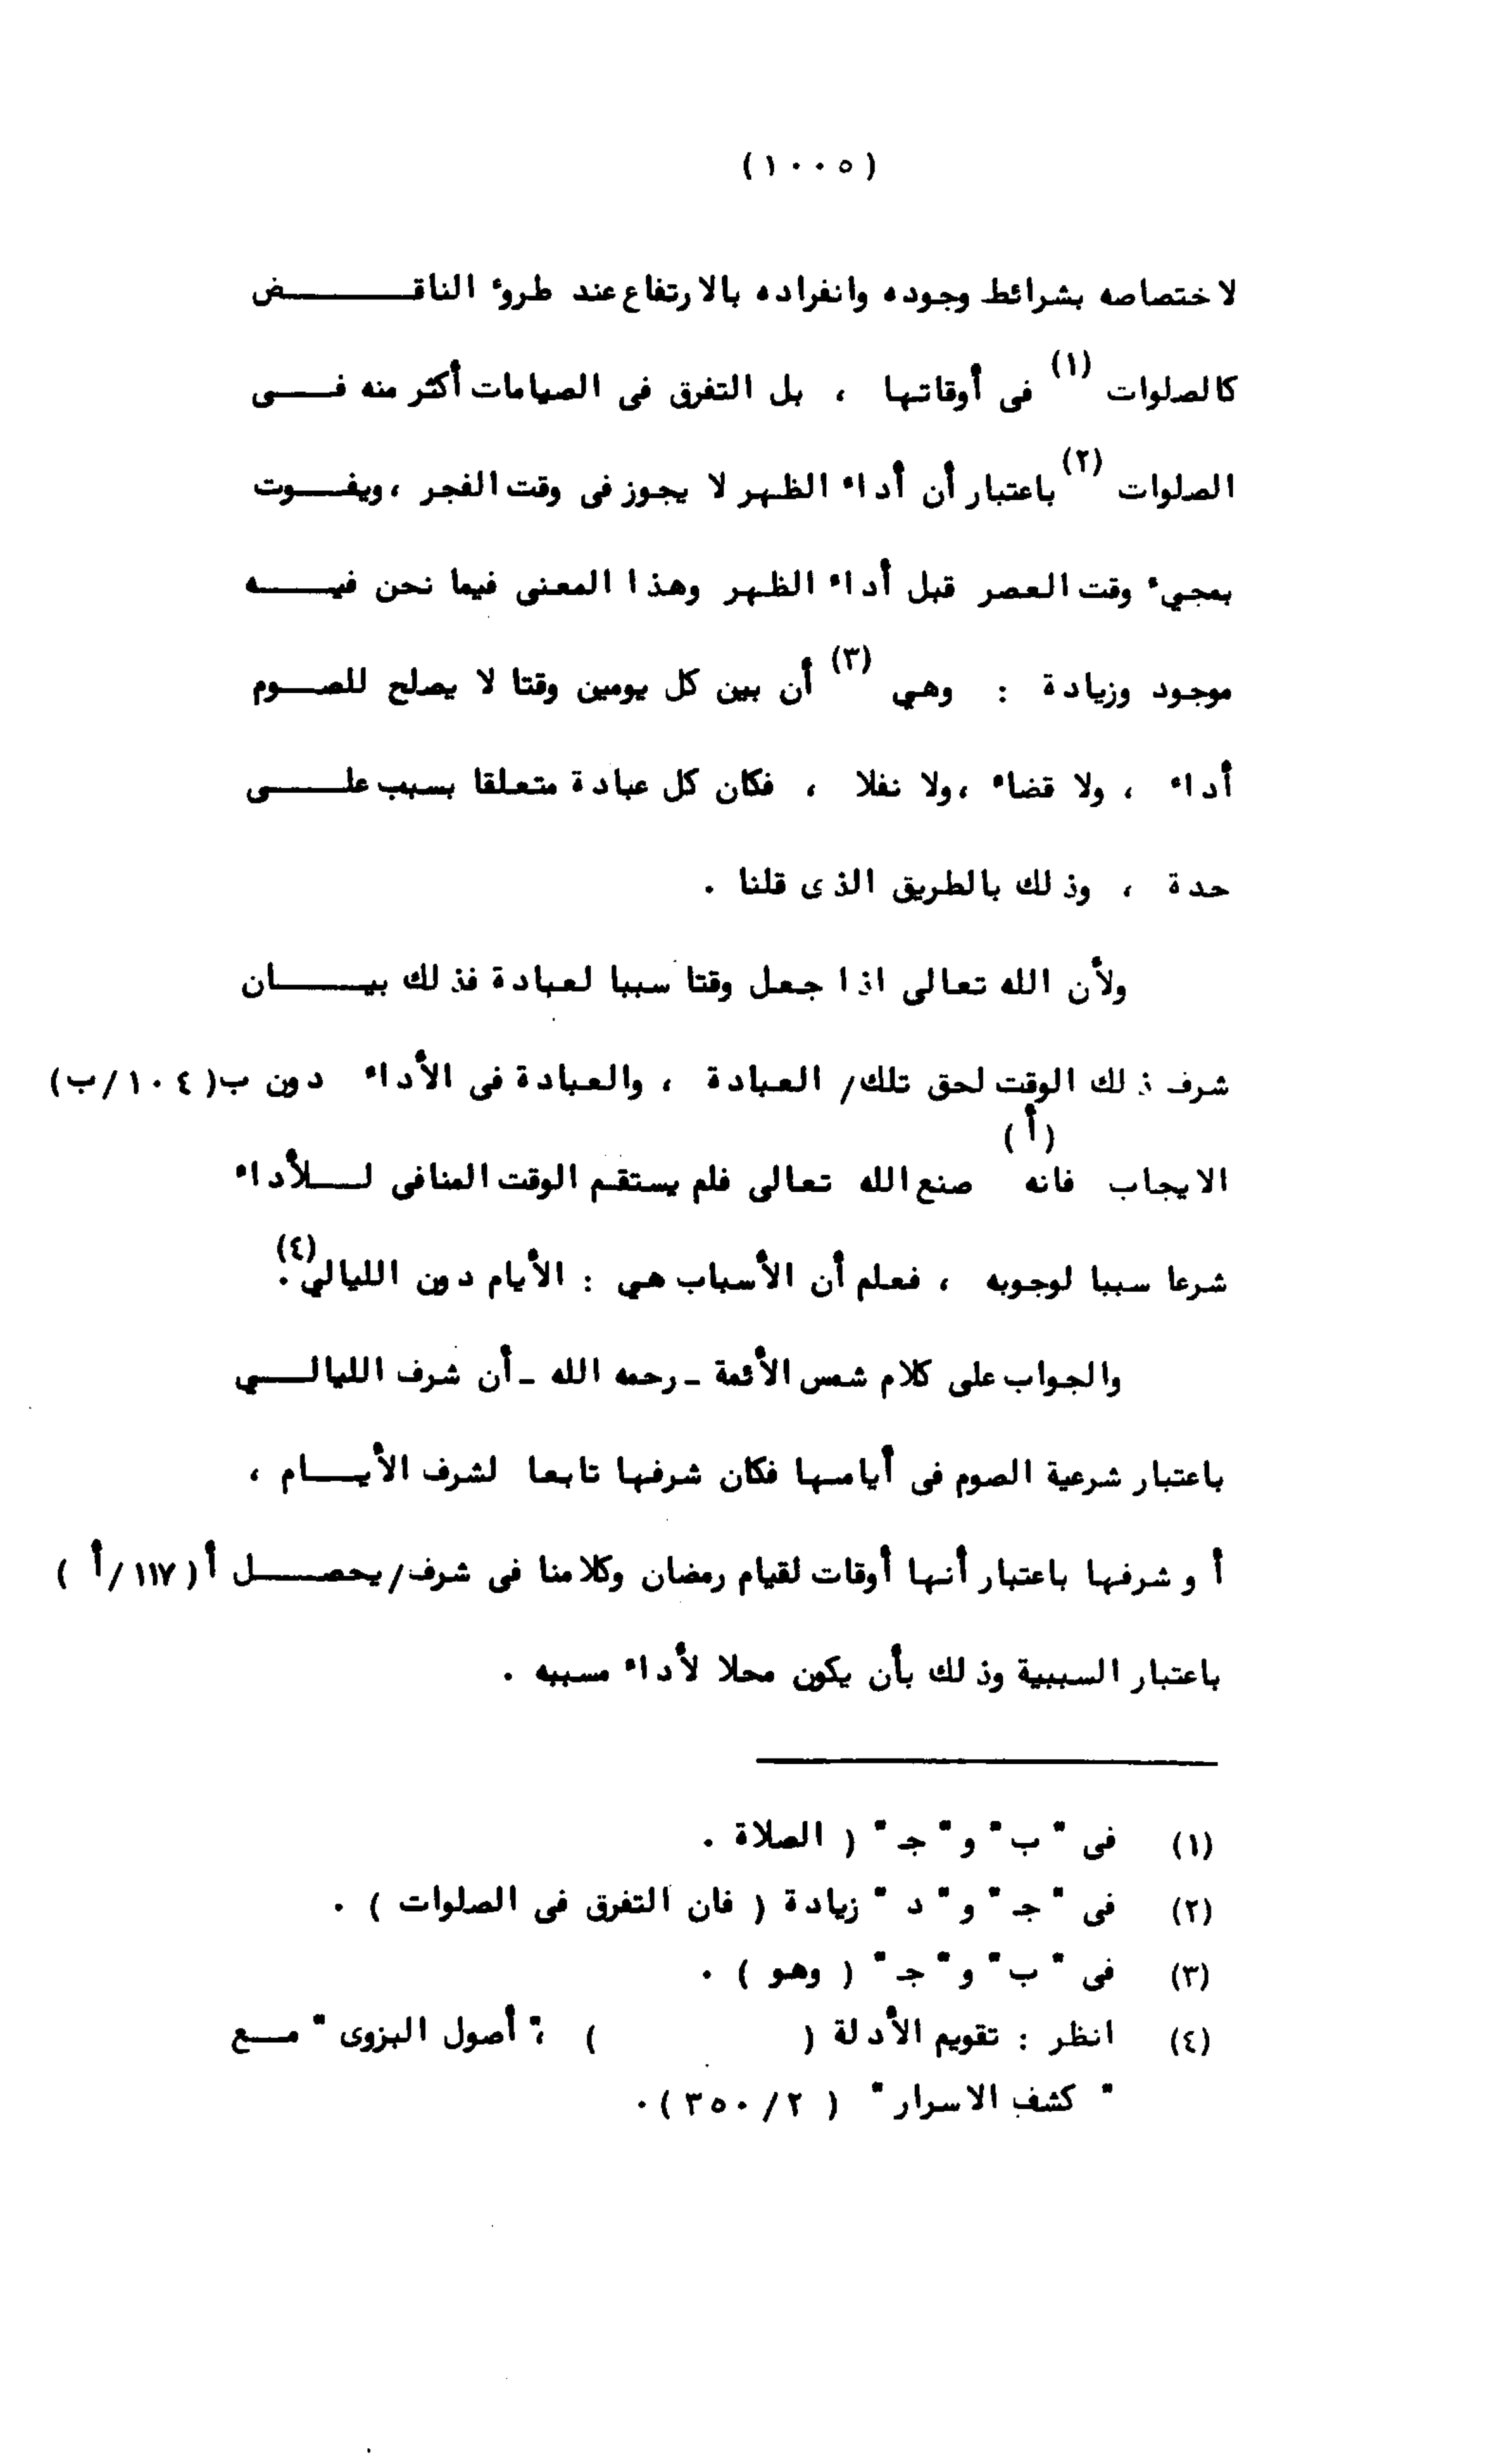 (١٠٠٥)
لاختصاصه بشرائط وجوده وانفراده بالارتفاع عند طروء الناقض
كالصلوات (١) فى أوقاتها ، بل التفرق فى الصيامات أكثر منه فى
الصلوات (٢) باعتبار أن أداء الظهر لا يجوز فى وقت الفجر ، ويفوت
بمجيء وقت العصر قبل أداء الظهر وهذا المعنى فيما نحن فيه
موجود وزيادة : وهي (٣) أن بين كل يومين وقتا لا يصلح للصوم
أداء ، ولا قضاء ، ولا نفلا ، فكان كل عبادة متعلقا بسبب على
حدة ، وذلك بالطريق الذى قلنا .
ولأن الله تعالى اذا جعل وقتا سببا لعبادة فذلك بيان
شرف ذلك الوقت لحق تلك/ العبادة ، والعبادة فى الأداء دون ب(١٠٤/ب)
الايجاب فانه (أ) صنع الله تعالى فلم يستقم الوقت المنافى للأداء
شرعا سببا لوجوبه ، فعلم أن الأسباب هي : الأيام دون الليالي(٤).
والجواب على كلام شمس الأئمة ـ رحمه الله ـ أن شرف الليالي
باعتبار شرعية الصوم فى أيامها فكان شرفها تابعا لشرف الأيام ،
أو شرفها باعتبار أنها أوقات لقيام رمضان وكلامنا فى شرف/ يحصل أ(١١٧/أ)
باعتبار السببية وذلك بأن يكون محلا لأداء مسببه .
(١) فى " ب " و " جـ " ( الصلاة .
(٢) فى " جـ " و " د " زيادة ( فان التفرق فى الصلوات ) .
(٣) فى " ب " و " جـ " ( وهو ) .
(٤) انظر : تقويم الأدلة ( ) ، " أصول البزوى " مع
" كشف الاسرار " ( ٢/ ٣٥٠ ) .